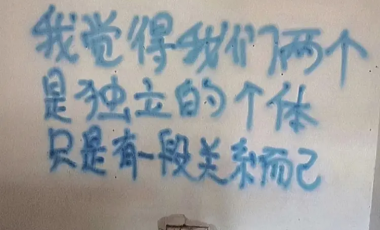 我觉得我们两个
是独立的个体
只是有一段关系而己